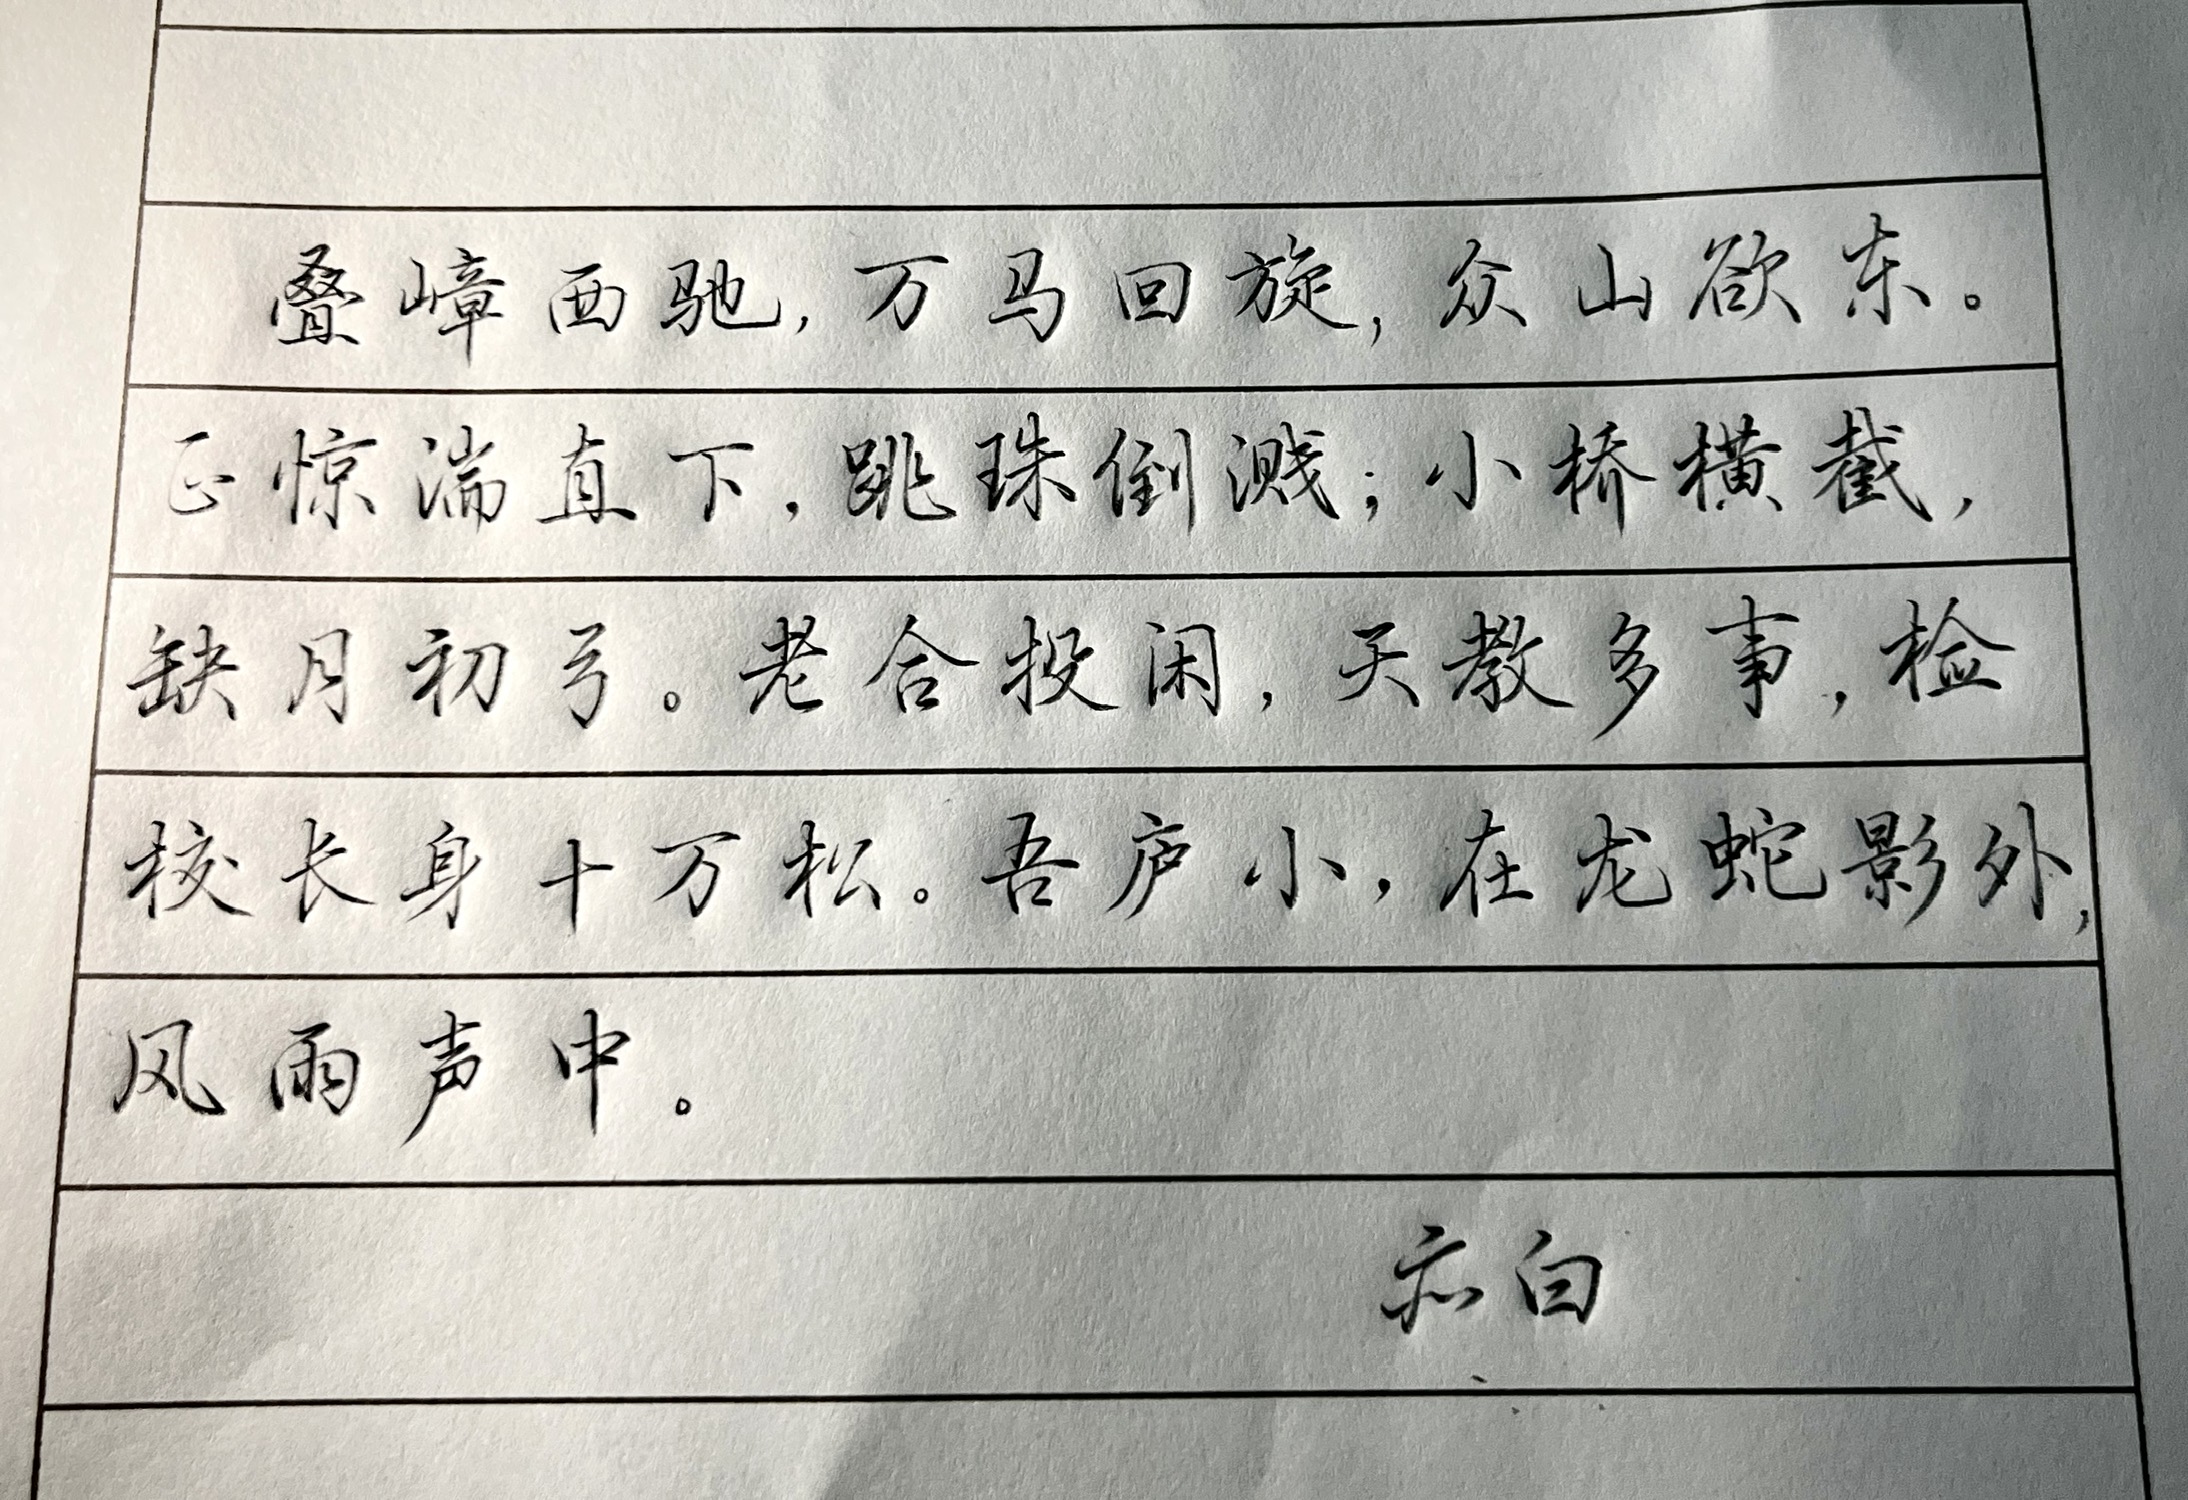 叠嶂西驰,万马回旋,众山欲东。
正惊湍直下,跳珠倒溅;小桥横截,
缺月初弓。老合投闲,天教多事,检
校长身十万松。吾庐小,在龙蛇影外,
风雨声中。
白